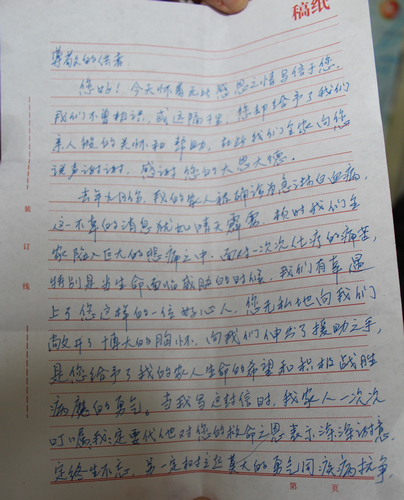 稿纸
尊敬的供者:
您好!今天怀着无比感恩之情写信于您,
我们不曾相识,或远隔千里,您却给予了我们
亲人般的关怀和帮助,在此我们全家向您
说声谢谢,感谢您的大恩大德。
去年九月份,我的家人被确诊为急淋白血病,
这一不幸的消息就如晴天霹雳,顿时我们全
家陷入巨大的悲痛之中,面对一次次化疗的痛苦,
特别是当生命面临威胁的时候,我们有幸遇
上了您这样的一位好心人,您无私地向我们
敞开了博大的胸怀,向我们伸出了援助之手,
是您给予了我的家人生命的希望和积极战胜
病魔的勇气。当我写这封信时,我家人一次次
叮嘱我一定要代他对您的救命之恩表示深深谢意,
定终生不忘,另一定树立起莫大的勇气同疾病抗争,
装
订
线
第 页